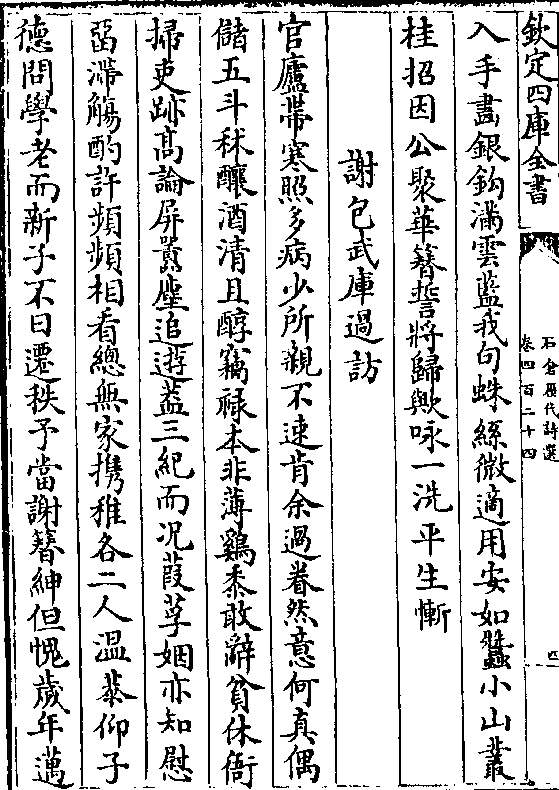 欽定四庫全書
石倉歷代詩選
卷四百二十四
四
入手畵銀鈎滿雲藍我句蛛絲微適用安如蠶小山叢
桂招因公聚華簮誓將歸歟咏一洗平生慚
謝包武庫過訪
官廬帶寒照多病少所親不速肯余過眷然意何真偶
儲五斗秫釀酒清且醇竊禄本非薄鷄黍敢辭貧休衙
掃吏跡髙論屏囂塵追遊葢三紀而况葭莩姻亦知慰
留滯觴酌許頻頻相看總無家携稚各二人温恭仰子
徳問學老而新子不日遷秩予當謝簮紳但愧歲年邁